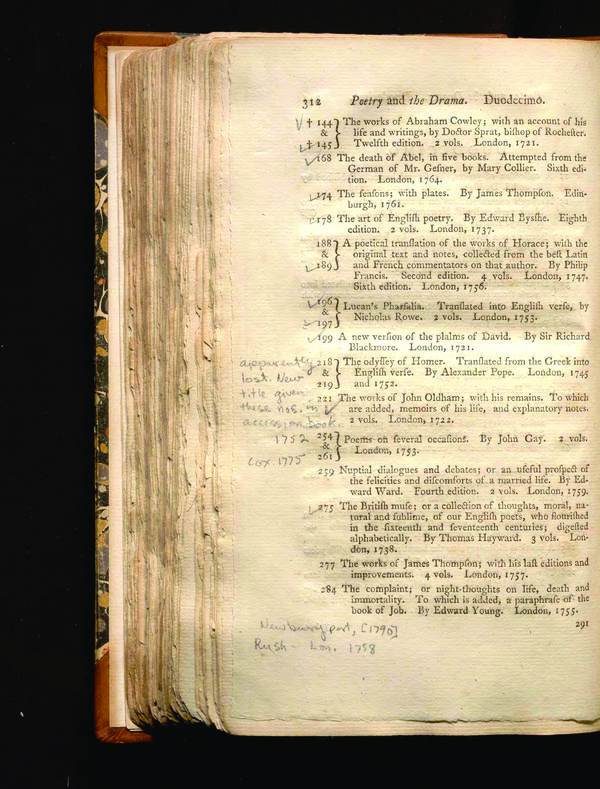 312 Poetry and the Drama. Duodecimo.
√ † 144 } The works of Abraham Cowley; with an account of his
& life and writings, by Doctor Sprat, biſhop of Rocheſter.
‡ 145 } Twelfth edition. 2 vols. London, 1721.
168 The death of Abel, in five books. Attempted from the
German of Mr. Geſner, by Mary Collier. Sixth edi-
tion. London, 1764.
174 The ſeaſons; with plates. By James Thompſon. Edin-
burgh, 1761.
178 The art of Engliſh poetry. By Edward Byſſhe. Eighth
edition. 2 vols. London, 1737.
188 } A poetical tranſlation of the works of Horace; with the
& original text and notes, collected from the beſt Latin
189 } and French commentators on that author. By Philip
Francis. Second edition. 4 vols. London, 1747.
Sixth edition. London, 1756.
196 } Lucan's Pharſalia. Tranſlated into Engliſh verſe, by
& Nicholas Rowe. 2 vols. London, 1753.
197 }
199 A new verſion of the pſalms of David. By Sir Richard
Blackmore. London, 1721.
apparently 218 } The odyſſey of Homer. Tranſlated from the Greek into
lost. New & Engliſh verſe. By Alexander Pope. London, 1745
219 } and 1752.
title given 221 The works of John Oldham; with his remains. To which
these nos. in √ are added, memoirs of his life, and explanatory notes.
accession book. 2 vols. London, 1722.
1752 254 } Poems on ſeveral occaſions. By John Gay. 2 vols.
& London, 1753.
Cox. 1775 261 }
259 Nuptial dialogues and debates; or an uſeful proſpect of
the felicities and diſcomforts of a married life. By Ed-
ward Ward. Fourth edition. 2 vols. London, 1759.
275 The Britiſh muſe; or a collection of thoughts, moral, na-
tural and ſublime, of our Engliſh poets, who flouriſhed
in the ſixteenth and ſeventeenth centuries; digeſted
alphabetically. By Thomas Hayward. 3 vols. Lon-
don, 1738.
277 The works of James Thompſon; with his laſt editions and
improvements. 4 vols. London, 1757.
284 The complaint; or night-thoughts on life, death and
immortality. To which is added, a paraphraſe of the
book of Job. By Edward Young. London, 1755.
291
Newburyport, [1790]
Rush - Lon. 1758